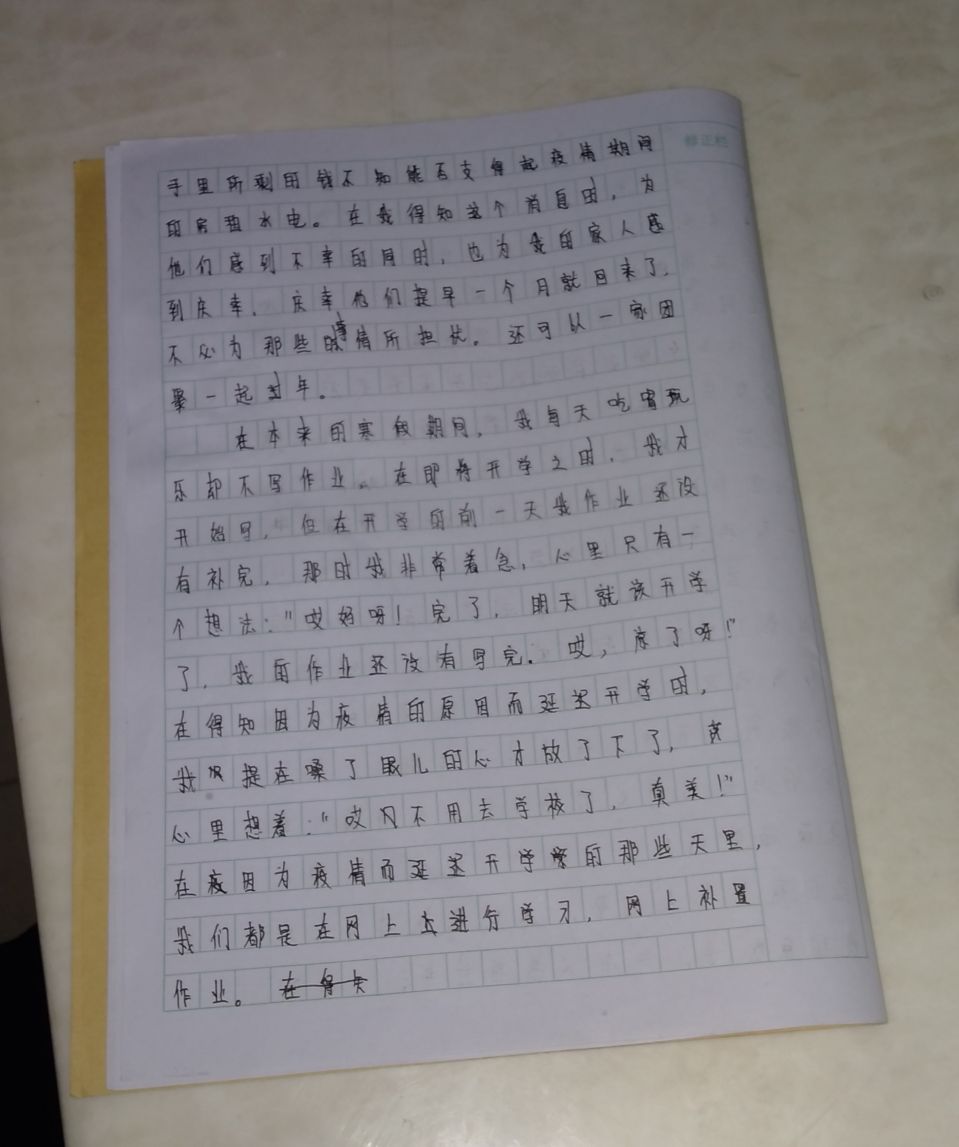 修正栏
手里所剩的钱不知能否支得起疫情期间
的房租水电。在我得知这个消息时，为
他们感到不幸的同时，也为我的家人感
到庆幸，庆幸他们提早一个月就回来了，
不必为那些事情所担忧。还可以一家团
聚一起过年。
在本来的寒假期间，我每天吃宵玩
乐却不写作业。在即将开学之时，我才
开始写，但在开学的前一天我作业还没
有补完，那时我非常着急，心里只有一
个想法：“哎妈呀！完了，明天就该开学
了，我的作业还没有写完。哎，废了呀！”
在得知因为疫情的原因而延迟开学时，
我提在嗓了眼儿的心才放了下了，
心里想着：“哎不用去学校了，真美！”
在疫因为疫情而延迟开学的那些天里，
我们都是在网上上进行学习，网上补置
作业。在得失